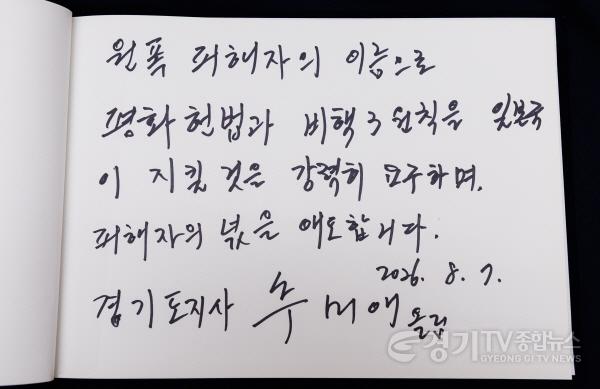 원폭 피해자의 이름으로
평화헌법과 비핵 3 원칙을 일본국
이 지킬 것을 강력히 요구하며,
피해자의 넋을 애도합니다.
2026. 8. 7.
경기도지사 추미애 올림
경기TV종합뉴스
GYEONG GI TV NEWS